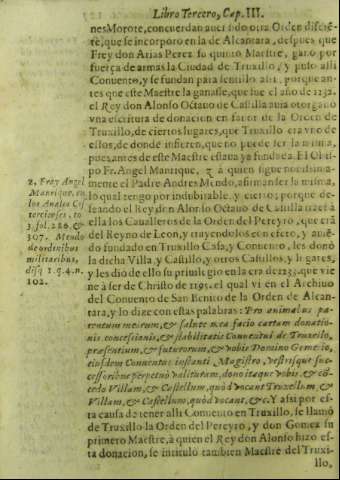 Libro Tercero, Cap. III.
nes Morote, concuerdan auer sido otra Orden diferē-
te, que se incorporò en la de Alcantara, despues que
Frey don Arias Perez su quinto Maestre, ganò por
fuerça de armas la Ciudad de Truxillo, y puso alli
Conuento, y se fundan para sentillo assi, porque an-
tes que este Maestre la ganasse, que fue el año de 1232.
el Rey don Alonso Octauo de Castilla auia otorgado
vna escritura de donacion en fauor de la Orden de
Truxillo, de ciertos lugares, que Truxillo era vno de
ellos, de donde infieren, que no puede ser la misma,
pues antes de este Maestre estaua ya fundada. El Obis-
po Fr. Angel Manrique, 2 à quien sigue nouissima-
mente el Padre Andres Mendo, afirman ser la misma,
lo qual tengo por indubitable, y cierto; porque de-
seando el Rey don Alonso Octauo de Castilla traer à
ella los Caualleros de la Orden del Pereyro, que erā
del Reyno de Leon, y trayendolos con efecto, y auiē-
do fundado en Truxillo Casa, y Conuento, les donò
la dicha Villa, y Castillo, y otros Castillos, y lugares,
y les diò de ello su priuilegio en la era de 1233. que vie
ne à ser de Christo de 1195. el qual vi en el Archiuo
del Conuento de San Benito de la Orden de Alcan-
tara, y lo dize con estas palabras: Pro animabus pa-
rentum meorum, & salute mea facio cartam donatio-
nis concessionis, & stabilitatis Conuentui de Truxillo,
præsentium, & futurorum, & vobis Domino Gomezio,
eiusdem Conuentus instanti Magistro, vestrisque suc-
cessoribus perpetuò valituram, dono itaque vobis, & cō-
cedo Villam, & Castellum, quòd vocant Truxellum, &
Villam, & Castellum, quòd vocant, &c. Y assi por es-
ta causa de tener alli Conuento en Truxillo, se llamò
de Truxillo la Orden del Pereyro, y don Gomez su
primero Maestre, à quien el Rey don Alonso hizo es-
ta donacion, se intitulò tambien Maestre del Truxi-
llo,
2. Fray Angel
Manrique, en
los Anales Cis
tercienses, to
3. fol. 286. &
307. Mendo
de ordinibus
militaribus,
disq 1. q. 4. n.
102.